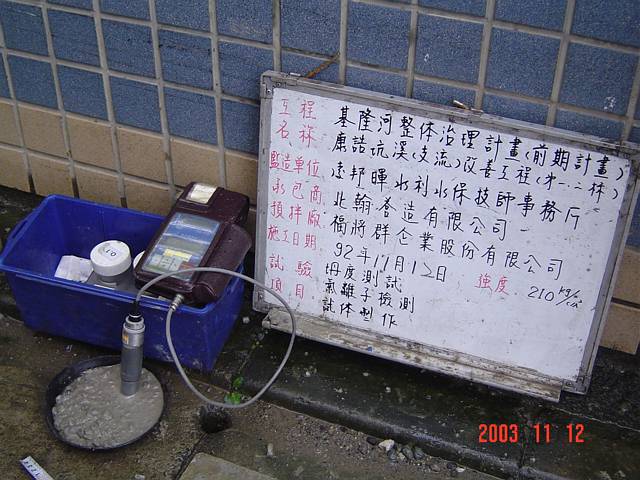 工程名稱 基隆河整体治理計畫(前期計畫)
康誥坑溪(支流)改善工程(第一.二標)
監造單位 遠邦暉水利水保技師事務所
承包商 北翰營造有限公司
預拌廠 福將群企業股份有限公司
施工日期 92年11月12日 強度 210 kg/cm²
試驗項目 坍度測試
氯離子檢測
試体製作
2003 11 12